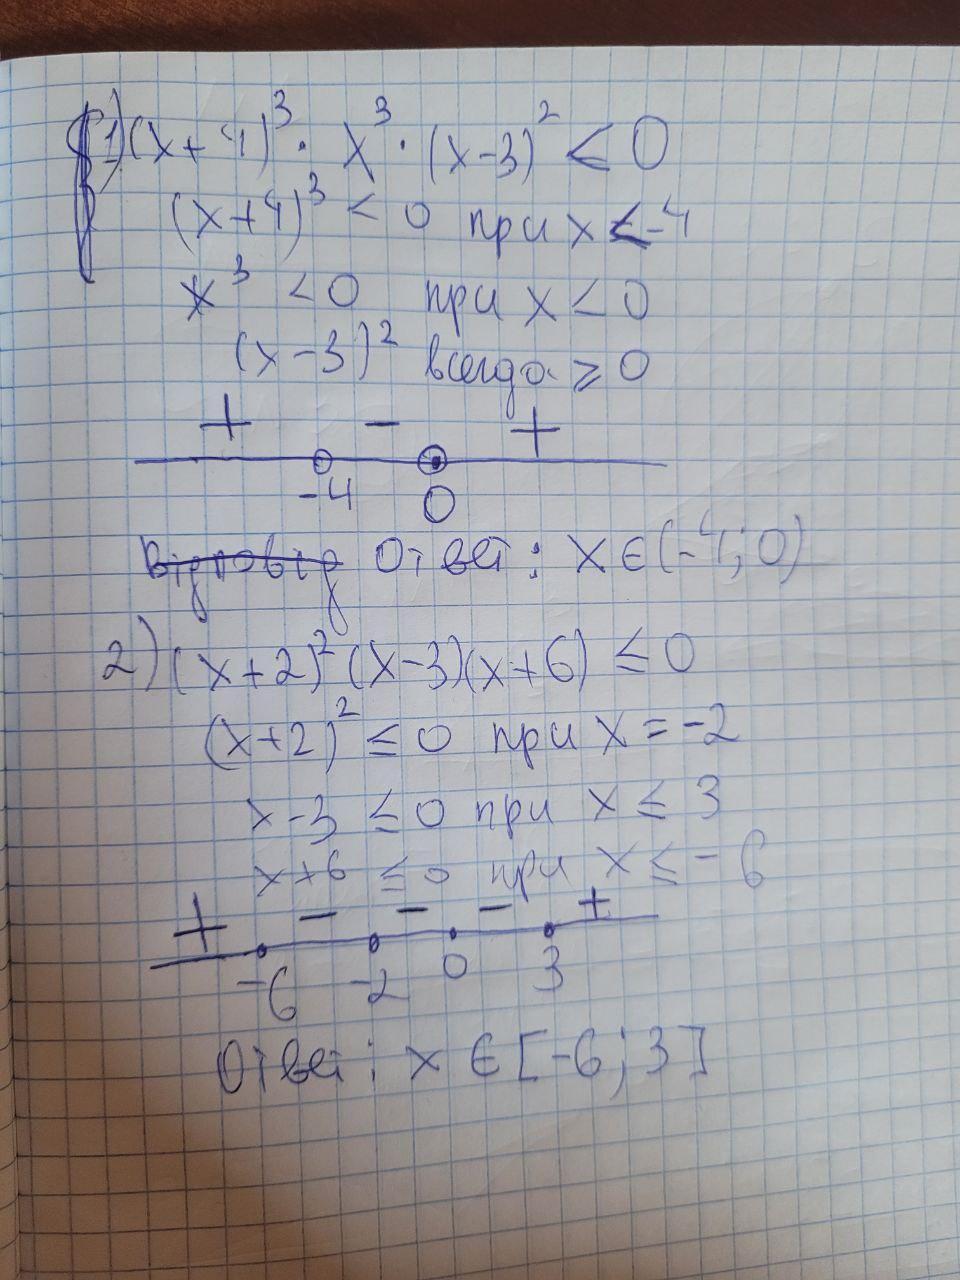 1) (x+4)³ · x³ · (x-3)² < 0
(x+4)³ < 0 при x < -4
x³ < 0 при x < 0
(x-3)² всегда ≥ 0
+ - +
-4 0
Відповід Ответ: x ∈ (-4; 0)
2) (x+2)² (x-3)(x+6) ≤ 0
(x+2)² ≤ 0 при x = -2
x-3 ≤ 0 при x ≤ 3
x+6 ≤ 0 при x ≤ -6
+ - - - +
-6 -2 0 3
Ответ: x ∈ [-6; 3]